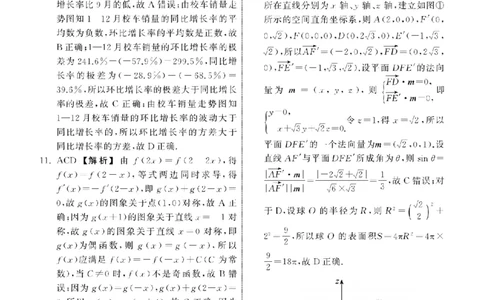 增长率比 9 月的低,故 A 错误;由校车销量走
势图知 1—12 月校车销量的同比增长率的平
均数为负数,环比增长率的平均数是正数,故
B 正确;1—12 月校车销量的环比增长率的极
差为 241.6%-(-57.9%)=299.5%,同比增
长率的极差为(-28.9%)-(-68.5%)=
39.6%,所以环比增长率的极差大于同比增长
率的极差,故 C 正确;由校车销量走势图知
1—12 月校车销量的环比增长率的波动大于
同比增长率的,所以环比增长率的方差大于
同比增长率的方差,故 D 正确.
11. ACD 【解析】由 f(2x)=f(2-2x),得
f(x)=f(2-x),等式两边同时求导,得
f′(x)=-f′(2-x),即 g(x)+g(2-x)=
0,故 g(x)的图象关于点(1,0)对称,故 A 正
确;因为 g(x+1)的图象关于直线 x=-1 对
称,故 g(x)的图象关于直线 x=0 对称,即
g(x)为偶函数,则 g(x)=g(-x),所以
f(x)应满足 f(x)=-f(-x)+C(C 为常
数),当 C≠0 时,f(x)不是奇函数,故 B 错
误;因为 g(x)=g(-x),g(x)+g(2-x)=
所在直线分别为 x 轴、y 轴、z 轴,建立如图①
所示的空间直角坐标系,则 A(2,0,0),F′(0,
0,√2),F(0,0,0),D(0,2√3,0),E′(-1,√3,
√2),所以AF′=(-2,0,√2),FD=(0,2√3,
0),FE′=(-1,√3,√2).设平面 DFE′的法向
量为 m=(x,y,z),则 {FD·m=0, FE′·m=0, 即
{y=0, -x+√3y+√2z=0, 令 z=1,得 x=√2,所以
平面 DFE′的一个法向量为m=(√2,0,1).设
直线 AF′与平面 DFE′所成角为 θ,则 sin θ=
|AF′·m|/|AF′||m|=|-2√2+√2|/(√6×√3)=1/3,故 C 错误;对
于 D,设球 O 的半径为 R,则 R²=(√2/2)²+
2²=9/2,所以球 O 的表面积S=4πR²=4π×
9/2=18π,故 D 正确.
z